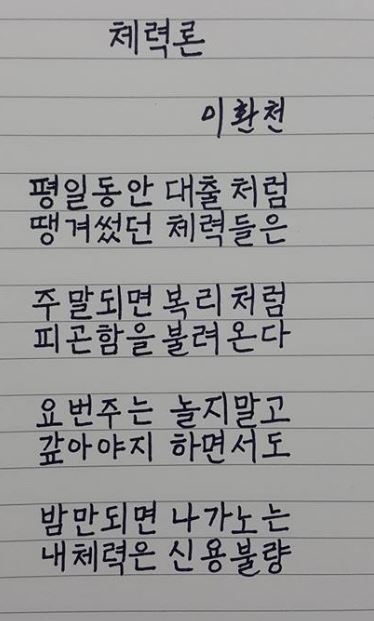 체력론
이환천
평일동안 대출처럼
땡겨썼던 체력들은
주말되면 복리처럼
피곤함을 불려온다
요번주는 놀지말고
갚아야지 하면서도
밤만되면 나가노는
내체력은 신용불량